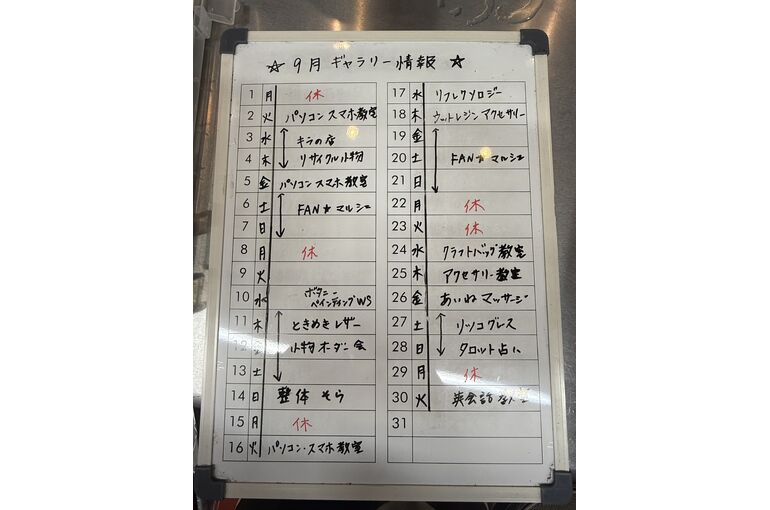 ☆ 9月 ギャラリー情報 ☆
1 月 休
2 火 パソコン スマホ教室
3 水 キラの店
4 木 リサイクル小物
5 金 パソコン スマホ教室
6 土 FAN☆マルシェ
7 日
8 月 休
9 火
10 水 ボタニー
ペインティングWS
11 木 ときめきレザー
12 金 小物オーダー会
13 土
14 日 整体 そら
15 月 休
16 火 パソコン・スマホ教室
17 水 リフレクソロジー
18 木 ウットレジン アクセサリー
19 金
20 土 FAN☆マルシェ
21 日
22 月 休
23 火 休
24 水 クラフトバッグ教室
25 木 アクセサリー教室
26 金 あいねマッサージ
27 土 リッコグレス
28 日 タロット占い
29 月 休
30 火 英会話教室
31